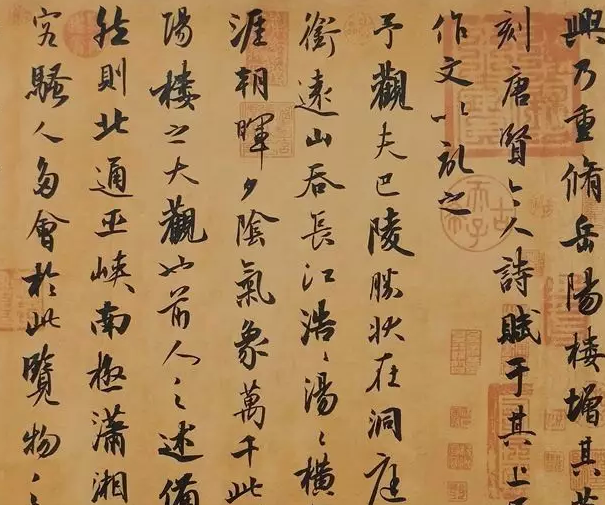 興乃重脩岳陽樓增其舊
刻唐賢今人詩賦于其上
作文以記之
予觀夫巴陵勝狀在洞庭
銜遠山吞長江浩〻湯〻橫
涯朝暉夕陰氣象萬千此
陽樓之大觀也前人之述備
然則北通巫峽南極瀟湘
客騷人多會於此覽物之